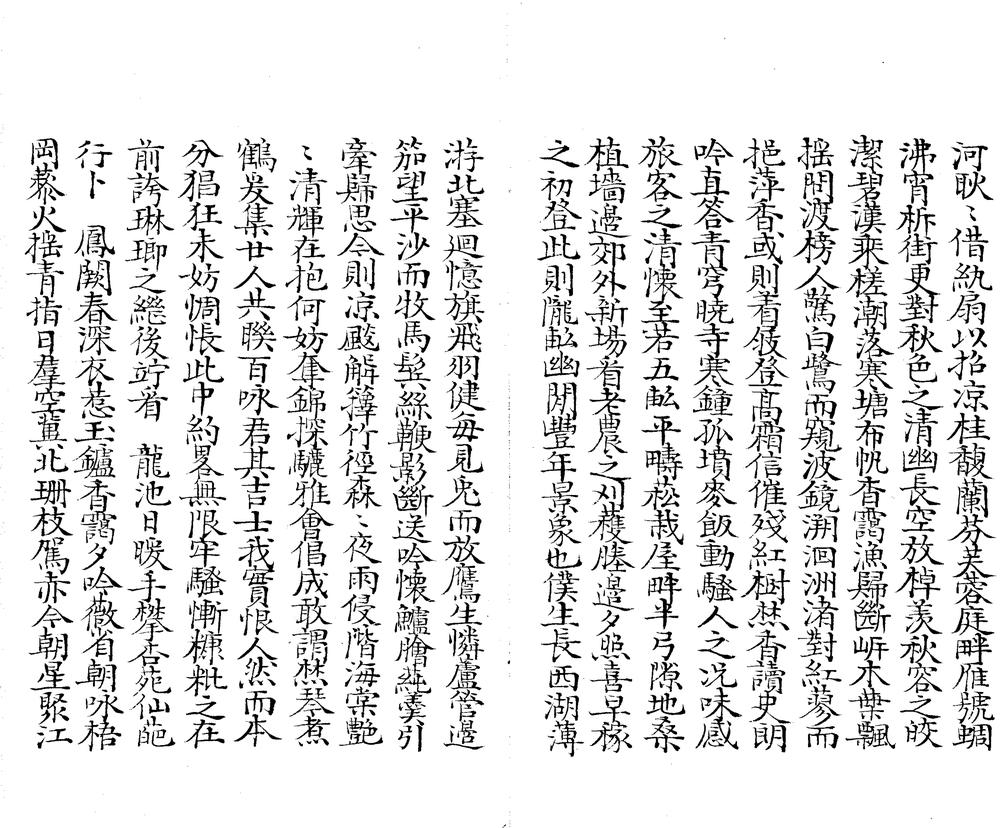 河耿〻借紈扇以招凉桂馥蘭芬芙蓉庭畔雁號蜩
沸宵柝街更對秋色之清幽長空放棹羡秋容之皎
潔碧漢乘槎潮落寒塘布帆香靄漁歸斷岍木葉飄
摇問渡榜人驚白鷺而窺波鏡溯洄洲渚對紅蓼而
挹萍香或則着屐登髙霜信催殘紅樹焚香讀史朗
吟真答青穹曉寺寒鐘孤墳麥飯動騷人之况味感
旅客之清懷至若五畝平疇菘栽屋畔半弓隙地桑
植墻邉郊外新場看老農之刈穫塍邉夕照喜早稼
之初登此則隴畝幽閒豐年景象也僕生長西湖薄
游北塞迴憶旗飛羽健每見兎而放鷹生憐蘆管邉
笳望平沙而牧馬髩絲鞭影斷送吟懷鱸膾蒓羮引
牽歸思今則凉颸解籜竹徑森〻夜雨侵階海棠艷
〻清輝在抱何妨奪錦探驪雅會倡成敢謂焚琴煮
鶴爰集廿人共聨百咏君其吉士我實恨人然而本
分猖狂未妨惆悵此中約畧無限牢騷慚糠粃之在
前誇琳瑯之繼後竚看 龍池日暖手攀杏苑仙葩
行卜 鳳闕春深衣惹玉鑪香靄夕吟薇省朝咏梧
岡藜火摇青指日羣空冀北珊枝駕赤今朝星聚江